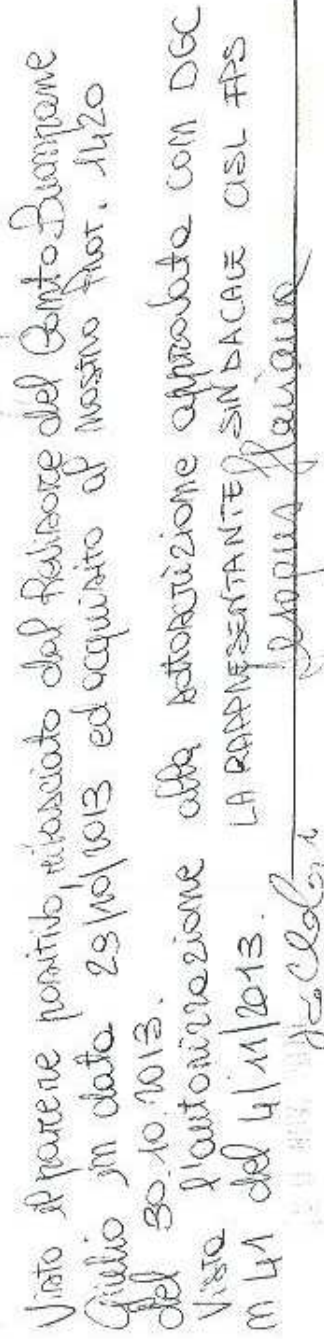 Visto il parere positivo rilasciato dal Revisore del Conto Buonpane
Giulio in data 29/10/2013 ed acquisito al nostro prot. 1420
del 30.10.2013.
Vista l'autorizzazione alla sottoscrizione approvata con DGC
n 41 del 4/11/2013. LA RAPPRESENTANTE SINDACALE CISL FPS